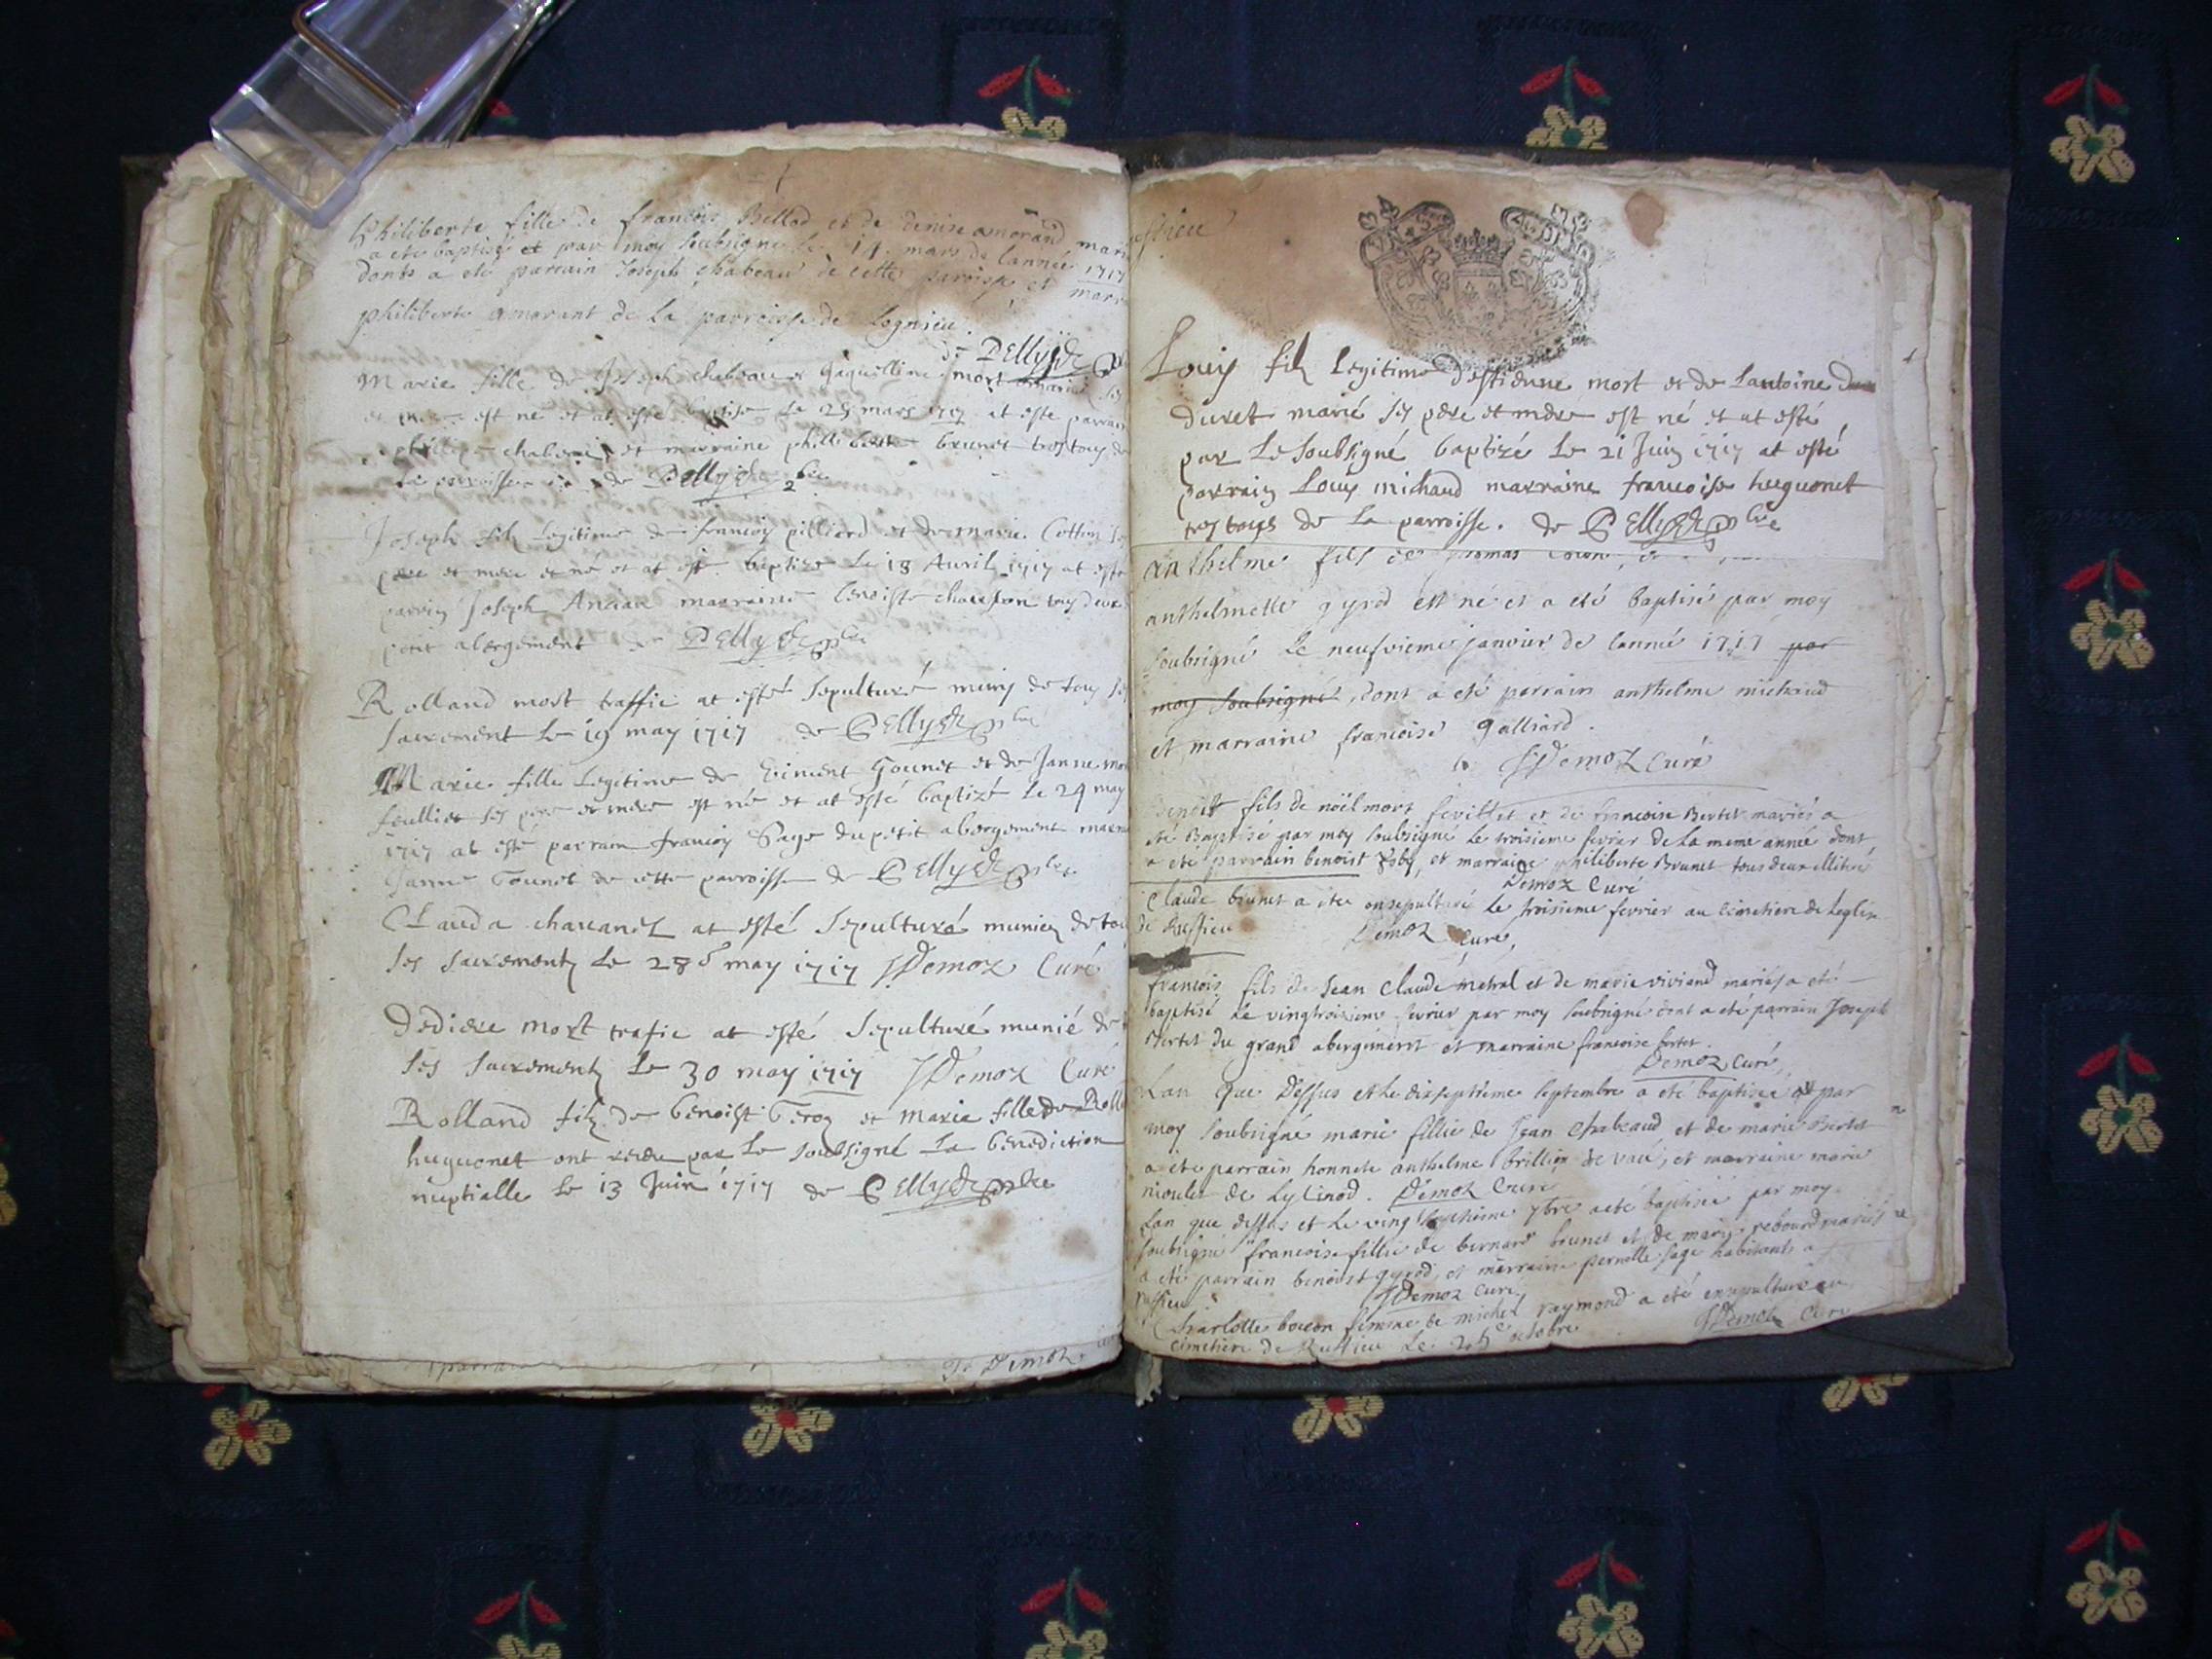 Philiberte fille de francois Bellod et de denise amorand mari
a ete baptisé et par moy soubsigné le 14 mars de lannée 1717
dont a eté parrain Joseph chabeau de cette paroisse et marr
philiberte amorant de la parroisse de Lognieu.
de Pellyer
Marie fille de Joseph chabeau et Jaquelline mort mariés ses
et mere est né et at esté baptisé le 25 mars 1717 at esté parrain
et marraine philliberte brunet tous deux
la parroisse de Pellyer
Joseph fils legitime de francois pilliard et de marie Cottin ses
pere et mere est né et at esté baptizé le 18 Avril 1717 at esté
parrin Joseph Ancian marraine benoiste tous deux
petit abergement de Pellyer pbre
Rolland mort traffic at esté sepulturé muny de tous ses
sacrement le 19 may 1717 de Pellyer pbre
Marie fille Legitime de Gounet et de Janne mo
feulliet ses pere et mere est né et at esté baptizé le 24 may
1717 at esté parrain francoy Sage du petit abergement marra
Janne Gounet de cette parroisse de Pellyer pbre
Clauda chavanel at esté sepulturé munies de tou
ses sacrements le 28e may 1717 JDemoz Curé
Dediere mort trafic at esté sepulturé munié de
ses sacrements le 30 may 1717 JDemoz Curé
Rolland filz de benoist et Marie fille de Rolla
huguonet ont receu par le soubsigné la benediction
nuptialle le 13 Juin 1717 de Pellyer pbre
parrain
JDemoz
Louis filz legitime d'estienne mort et de Lantoine
duret marié ses pere et mere est né et at esté
par Le soubsigné baptizé le 21 Juin 1717 at esté
parrain Louis michaud marraine francoise huguonet
tous de la parroisse. de Pellyer pbre
anthelme fils de thomas
anthelmette gyrod est né et a eté baptisé par moy
soubsigné le neufvieme janvier de lanné 1717 par
moy soubsigné, dont a eté parrain anthelme michaud
et marraine francoise galliard.
JDemoz Curé
benoit fils de noël mort feuillet et de francoise Bertet mariés a
eté Baptisé par moy soubsigné le troisieme fevrier de la meme année dont
a eté parrain benoist et marraine philiberte Brunet tous deux illitere
Demoz Curé
Claude brunet a éte ensepulturé le troisieme fevrier au cimetiere de leglise
de Ruffieu Demoz Curé,
francois fils de Jean Claude metral et de marie viviand mariés a eté
baptisé le vingtroisieme fevrier par moy soubsigné dont a eté parrain Joseph
Bertet du grand abergement et marraine francoise bertet.
Demoz Curé,
Lan que Dessus et le dixseptieme septembre a eté baptisée par
moy soubsigné marie fillie de Jean Chabeaud et de marie Bertet
a ete parrain honnete anthelme brillin de vaux, et marraine marie
de Lylinod. Démoz Curé
Lan que dessus et le vingtseptieme 7bre a eté baptisée par moy
soubsigné francoise fillie de bernard brunet et de marie rebourd mariés
a eté parrain benoist gyrod, et marraine pernette sage habitants a
ruffieu JDemoz Curé
Charlotte femme de michel raymond a été ensepulturé au
cimetiere de Ruffieu le 25e octobre JDemoz Curé